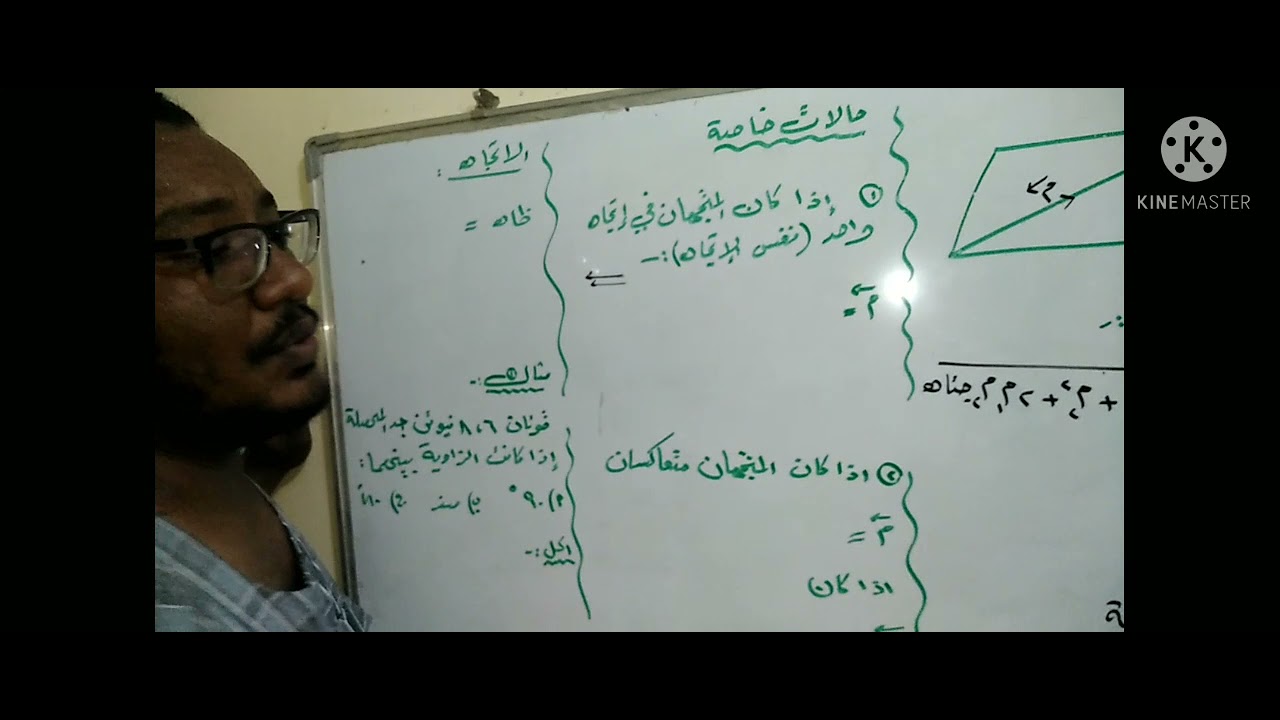 حالات خاصة
① إذا كان المتجهان في إتجاه
واحد (نفس الإتجاه):-
م =
② اذا كان المتجهان متعاكسان
م =
اذا كان
الاتجاه :
ظاه =
مثال:-
قوتان ٨،٦ نيوتن جد المحصلة
إذا كانت الزاوية بينهما:
أ) ٩٠° ب) صفر ج) ١٨٠°
الحل:-
م
+ م₂² + ٢م₁م₂ جتاه
K
KINEMASTER